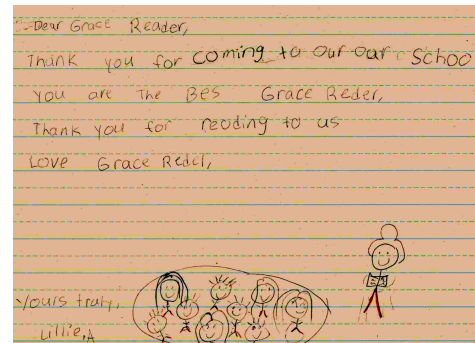 Dear Grace Reader,
Thank you for coming to our our Schoo
you are The Bes Grace Reder,
Thank you for reoding to us
Love Grace Redel,
Yours truty,
Lillie,A